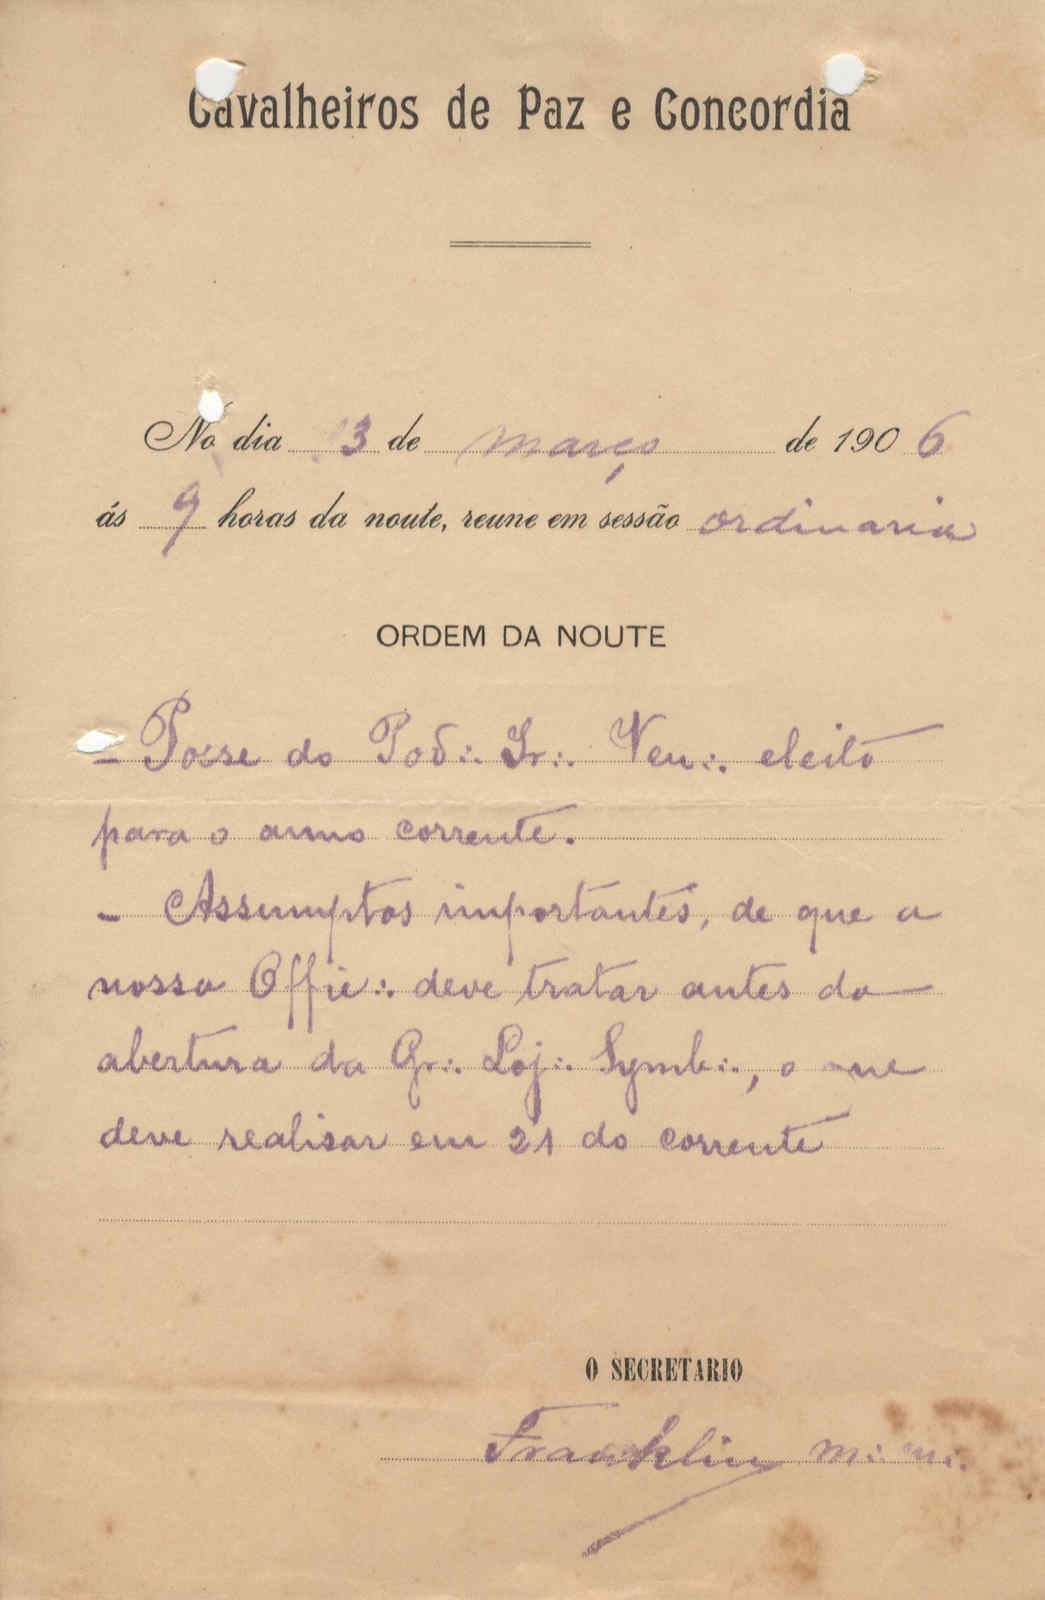 Cavalheiros de Paz e Concordia
No dia 13 de março de 1906
ás 9 horas da noute, reune em sessão ordinaria
ORDEM DA NOUTE
- Posse do Pod∴ Ir∴ Ven∴ eleito
para o anno corrente.
- Assumptos importantes, de que a
nossa Offic∴ deve tratar antes da
abertura da Gr∴ Loj∴ Symb∴, o que
deve realisar em 21 do corrente
O SECRETARIO
Franklin M∴ M∴